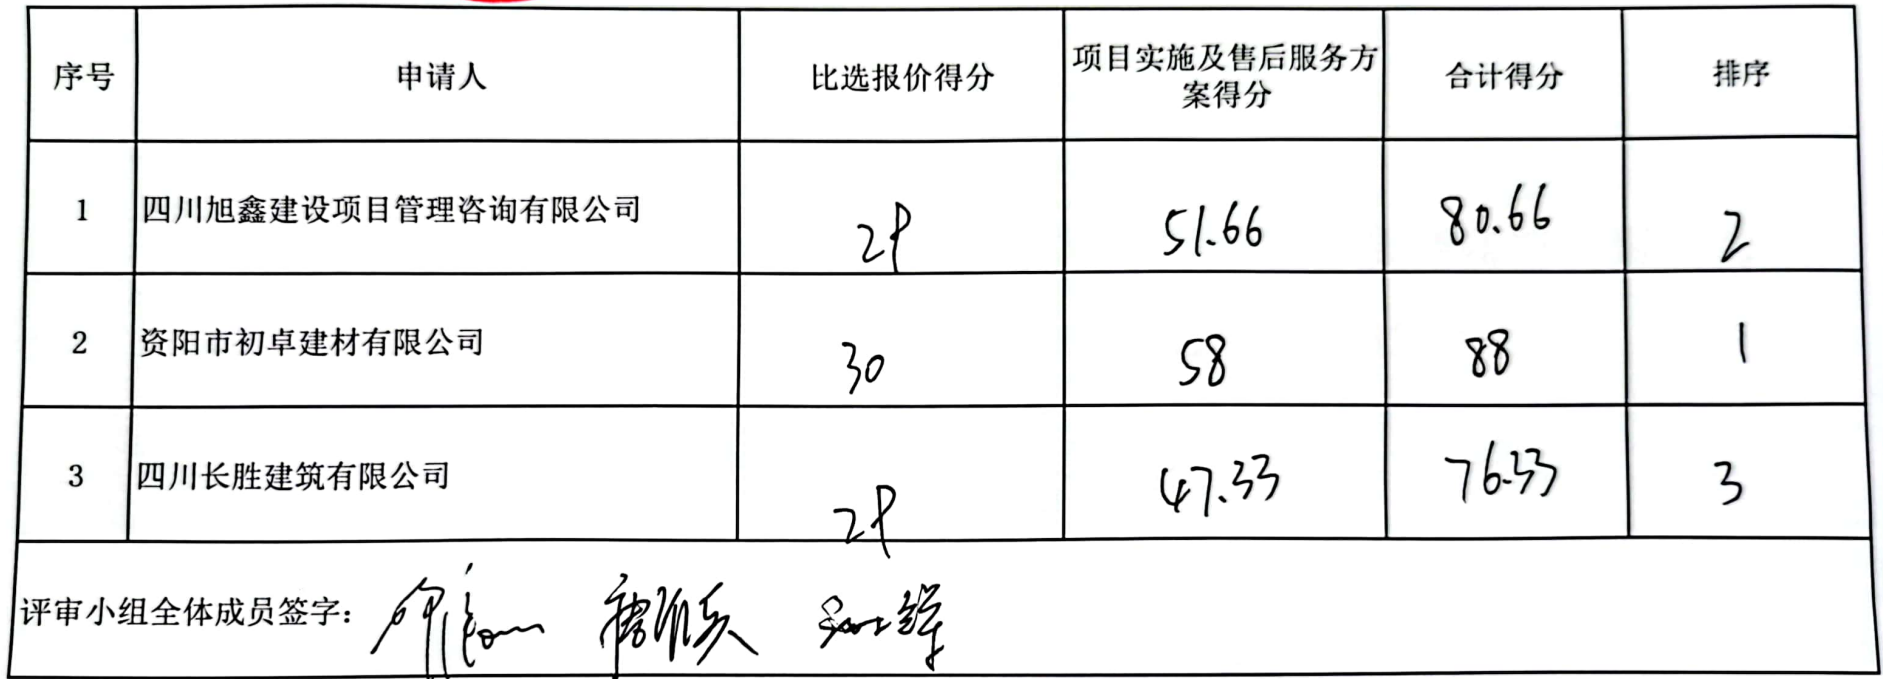 序号 申请人 比选报价得分 项目实施及售后服务方案得分 合计得分 排序
1 四川旭鑫建设项目管理咨询有限公司 29 51.66 80.66 2
2 资阳市初卓建材有限公司 30 58 88 1
3 四川长胜建筑有限公司 29 47.33 76.33 3
评审小组全体成员签字：